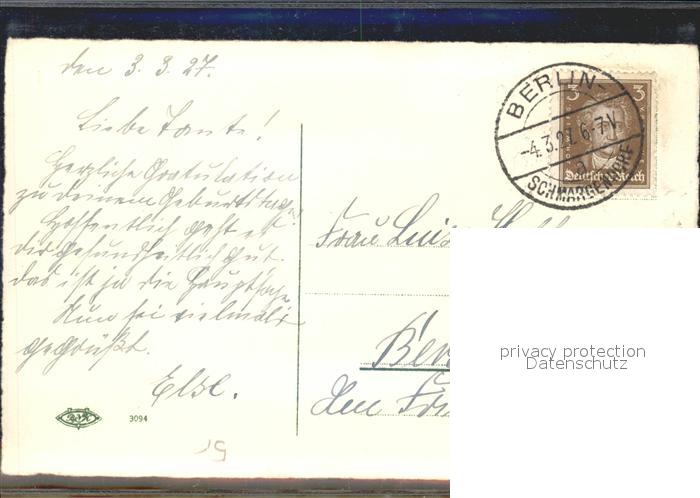 den 3.3.27.
Liebe Tante!
Herzliche Gratulation
zu deinem Geburtstage!
Hoffentlich geht es
dir gesundheitlich gut.
das ist ja die Hauptsache
Nun sei vielmals
gegrüßt.
Else.
3094
BERLIN-
-4.3.27.6-7V.
SCHMARGENDORF
3 3
Deutsches Reich
Frau Luis
Ber
privacy protection
Datenschutz